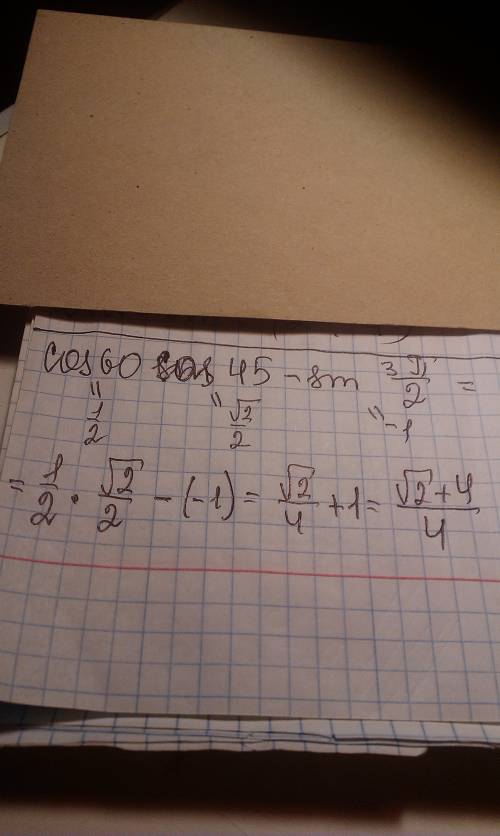 cos 60 cos 45 - sin 3π/2 =
" 1/2 " √2/2 " -1
= 1/2 · √2/2 - (-1) = √2/4 + 1 = √2 + 4/4